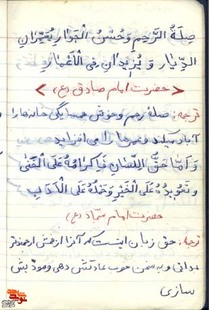 صِلَةُ الرَّحِمِ وَحُسْنُ الْجَوارِ یُعَمِّرانِ
الدِّیارَ وَ یَزیدانِ فِی الْأَعْمارِ
حضرت امام صادق (ع)
ترجمه: صله رحم و خوش همسایگی خانه‌ها را
آباد میکند و عمرها را می افزاید
وَ أَمّا حَقُّ اللِّسانِ فَإِکْرامُهُ عَنِ الْخَنی
وَ تَعْویدُهُ عَلَی الْخَیْرِ وَ حَمْلُهُ عَلَی الْأَدَبِ
حضرت امام سجاد (ع)
ترجمه: حق زبان اینست که آنرا از فحش ارجمندتر
بدانی و به سخن خوب عادتش دهی و مودبش
سازی